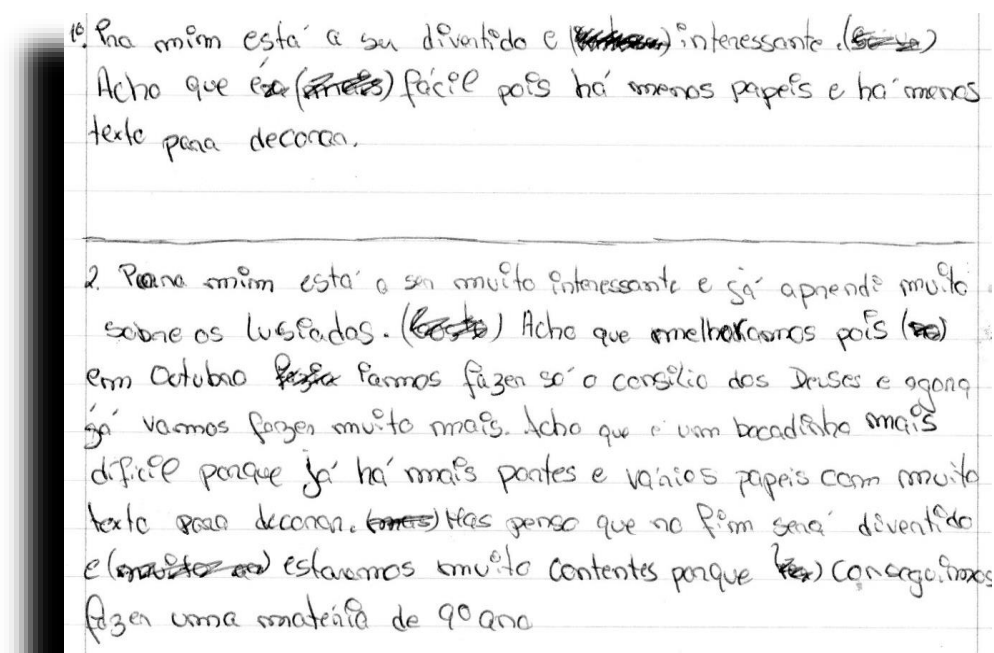 1º. Pra mim está a ser divertido e () interessante. ()
Acho que era () fácil pois há menos papeis e há menos
texto para decorar.
2. Para mim está a ser muito interessante e já aprendi muito
sobre os lusíadas. () Acho que melhoramos pois ()
em Outubro íamos fazer só o consílio dos Deuses e agora
já vamos fazer muito mais. Acho que é um bocadinho mais
dificil porque já há mais partes e vários papeis com muito
texto para decorar. () Mas penso que no fim será divertido
e () estaremos muito contentes porque () conseguimos
fazer uma matéria de 9º ano